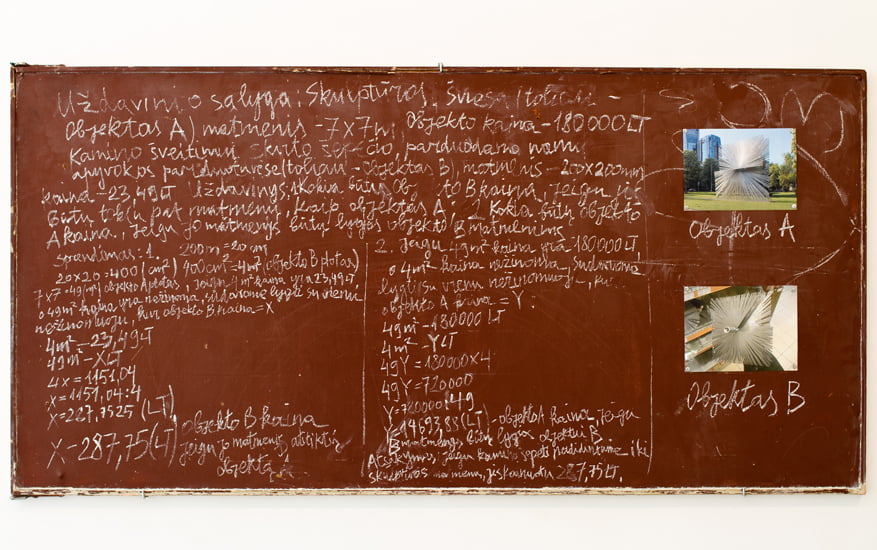 Uždavinio sąlyga: Skulptūros, Šviesa (toliau -
Objektas A) matmenis - 7x7m, Objekto kaina - 180000LT
Kamino šveitimui skirto šepečio, parduodamo namų
apyvokos parduotuvėse (toliau - Objektas B), matmenis - 200x200mm
kaina - 23,49LT Uždavinys: Kokia būtų Objekto B kaina, jeigu jis
Būtų tokių pat matmenų, kaip objektas A? 2. Kokia būtų objekto
A kaina, jeigu jo matmenys būtų lygūs objekto B matmenims
Sprendimas: 1. 200m = 20 cm
20x20=400(cm²) 400cm²=4m² (objekto B plotas)
7x7=49(m²) objekto A plotas, jeigu 4m² kaina yra 23,49LT
o 49m² kaina yra nežinoma, sudarome lygtį su vienu
nežinomuoju, kur objekto B kaina = X
4m² - 23,49LT
49m² - X LT
4x = 1151,04
X = 1151,04:4
X = 287,7525 (LT)
X - 287,75(LT)
objekto B kaina
jeigu jo matmenys atitiktų
objektą A
2. Jeigu 49m² kaina yra 180000LT,
o 4m² kaina nežinoma, sudarome
lygtį su vienu nežinomuoju, kur
objekto A kaina = Y.
49m² - 180000 LT
4m² - Y LT
49Y = 180000x4
49Y = 720000
Y = 720000:49
Y = 14693,88(LT) - objekto A kaina, jeigu
matmenys būtų lygūs objektui B
Atsakymas, jeigu kamino šepetį padidintume iki
skulptūros matmenų, jis kainuotų 287,75LT.
Objektas A
Objektas B